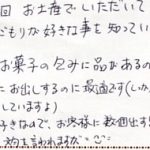 回 お土産でいただいて
どもりが好きな事を知ってい
お菓子の包みに品があるの
にお出しするのに最適です(いか
していますよ)
子きなので、お客様に数個出す!
文句を言われますが